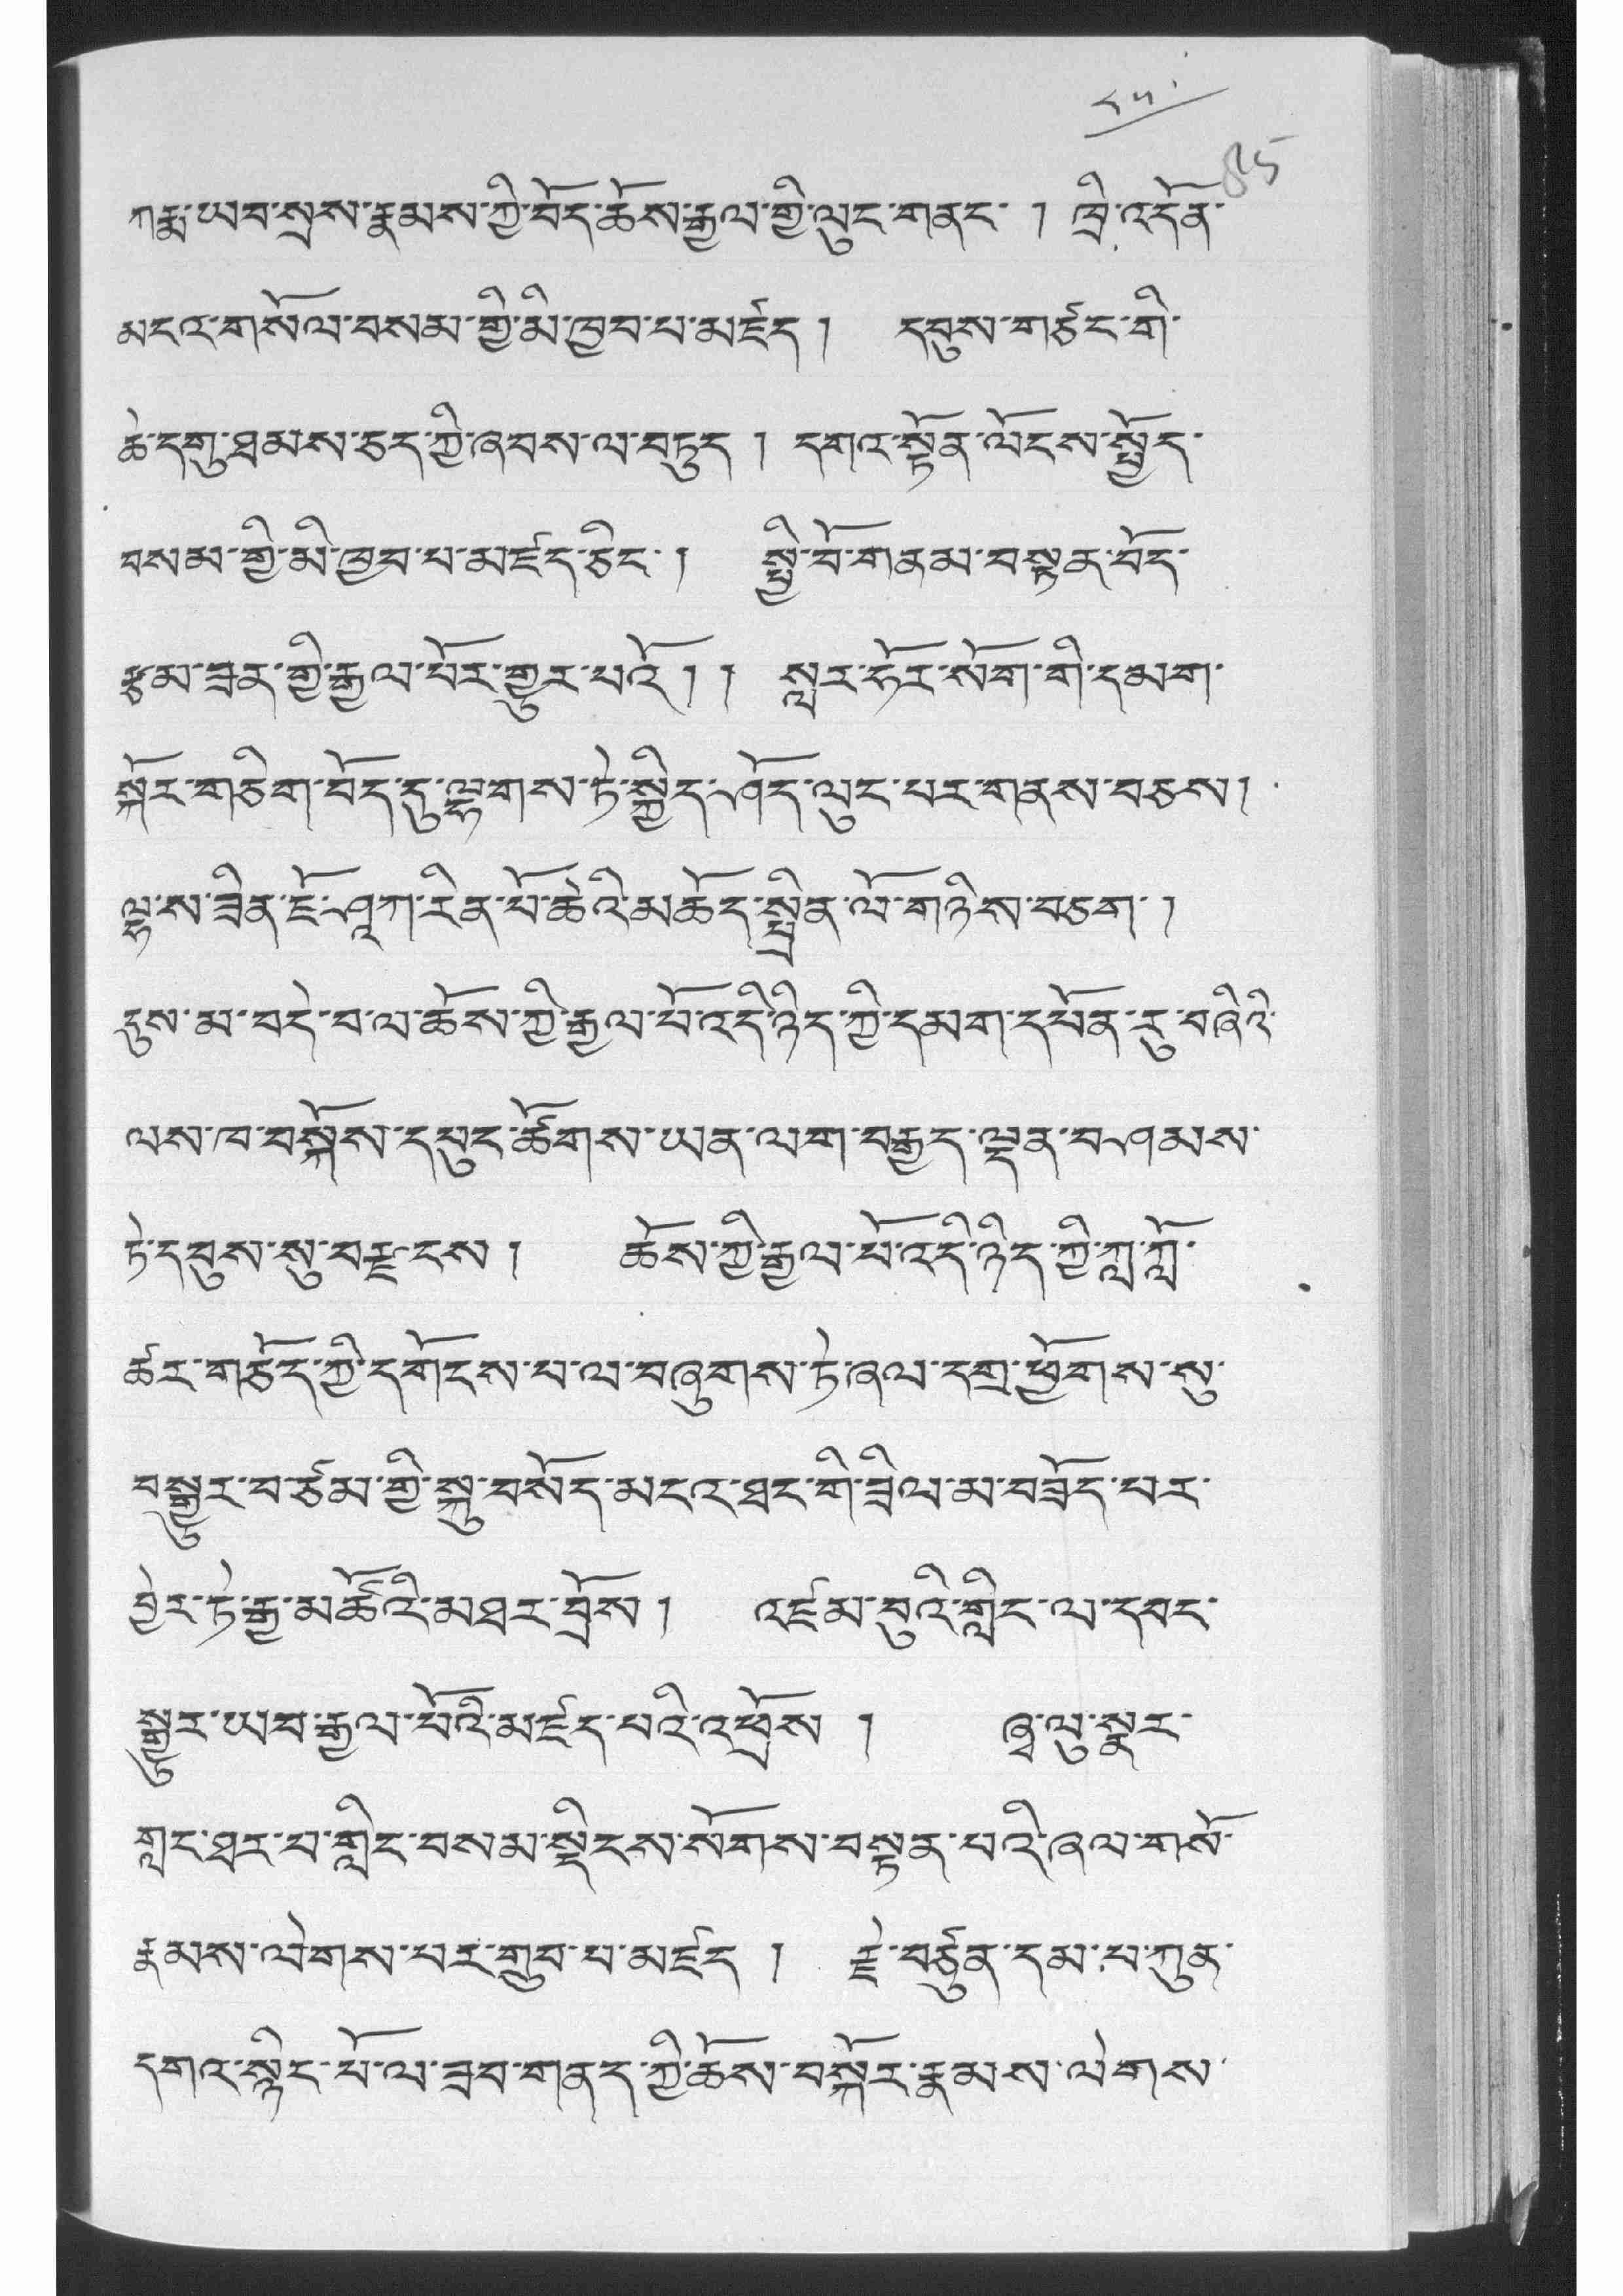 ༨༥
85
ཀརྨ་ཡབ་སྲས་རྣམས་ཀྱི་བོད་ཆོས་རྒྱལ་གྱི་ལུང་གནང་ །  ཁྲི་འདོན་
མངའ་གསོལ་བསམ་གྱི་མི་ཁྱབ་པ་མཛད །   དབུས་གཙང་གི་
ཆེ་དགུ་ཐམས་ཅད་ཀྱི་ཞབས་ལ་བཏུད །  དགའ་སྟོན་ལོངས་སྤྱོད་
བསམ་གྱི་མི་ཁྱབ་པ་མཛད་ཅིང་ །   སྤྱི་བོ་གནམ་བསྟན་བོད་
ཙམ་ཟན་གྱི་རྒྱལ་པོར་གྱུར་པའོ ། །  སླར་ཧོར་སོག་གི་དམག་
སྐོར་གཅིག་བོད་དུ་ལྷགས་ཏེ་སྐྱིད་ཤོད་ལུང་པར་གནས་བཅས །
ལྷ་ས་ཟིན་ཇོ་ཤཱཀ་རིན་པོ་ཆེའི་མཆོད་སྤྲིན་ལོ་གཉིས་བཅག་ །
དུས་མ་བདེ་བ་ལ་ཆོས་ཀྱི་རྒྱལ་པོ་འདི་ཉིད་ཀྱི་དམག་དཔོན་རུ་བཞིའི་
ལས་ཁ་བསྐོས་དཔུང་ཚོགས་ཡན་ལག་བརྒྱད་ལྡན་བཤམས་
ཏེ་དབུས་སུ་བརྫངས །   ཆོས་ཀྱི་རྒྱལ་པོ་འདི་ཉིད་ཀྱི་ཀླ་ཀློ་
ཚར་གཅོད་ཀྱི་དགོངས་པ་ལ་བཞུགས་ཏེ་ཞལ་དགྲ་ཕྱོགས་སུ་
བསྒྱུར་བ་ཙམ་གྱི་སྐུ་བསོད་མངའ་ཐང་གི་ཟིལ་མ་བཟོད་པར་
བྱེར་ཏེ་རྒྱ་མཚོའི་མཐར་བྲོས །   འཛམ་བུའི་གླིང་ལ་དབང་
སྒྱུར་ཡབ་རྒྱལ་པོའི་མཛད་པའི་འཕྲོས །   ཞྭ་ལུ་སྣར་
གླང་ཐར་པ་གླིང་བསམ་སྡིངས་སོགས་བསྟན་པའི་ཞལ་གསོ་
རྣམས་ལེགས་པར་གྲུབ་པ་མཛད །   རྗེ་བཙུན་དམ་པ་ཀུན་
དགའ་སྙིང་པོ་ལ་ཟབ་གནད་ཀྱི་ཆོས་བསྐོར་རྣམས་ལེགས་